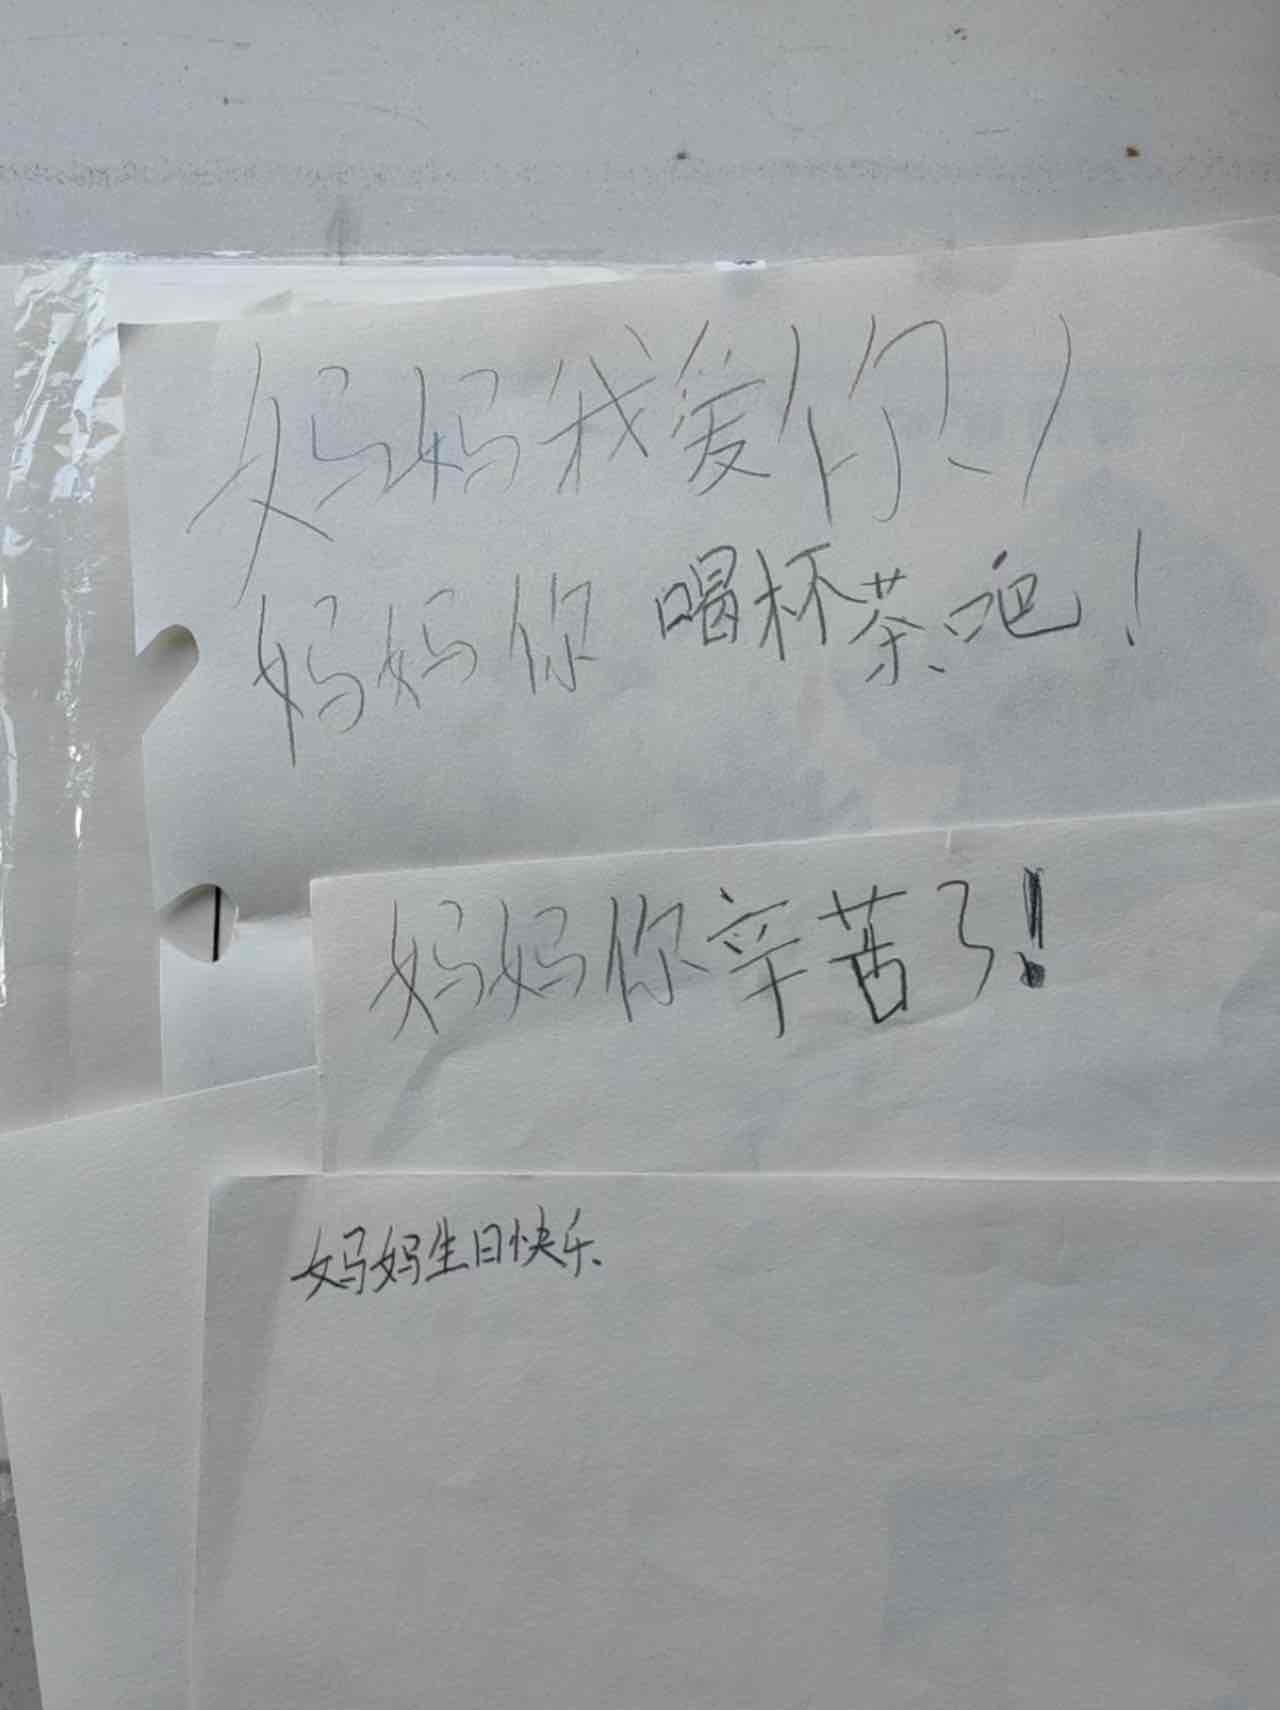 妈妈我爱你！
妈妈你喝杯茶吧！
妈妈你辛苦了！
妈妈生日快乐